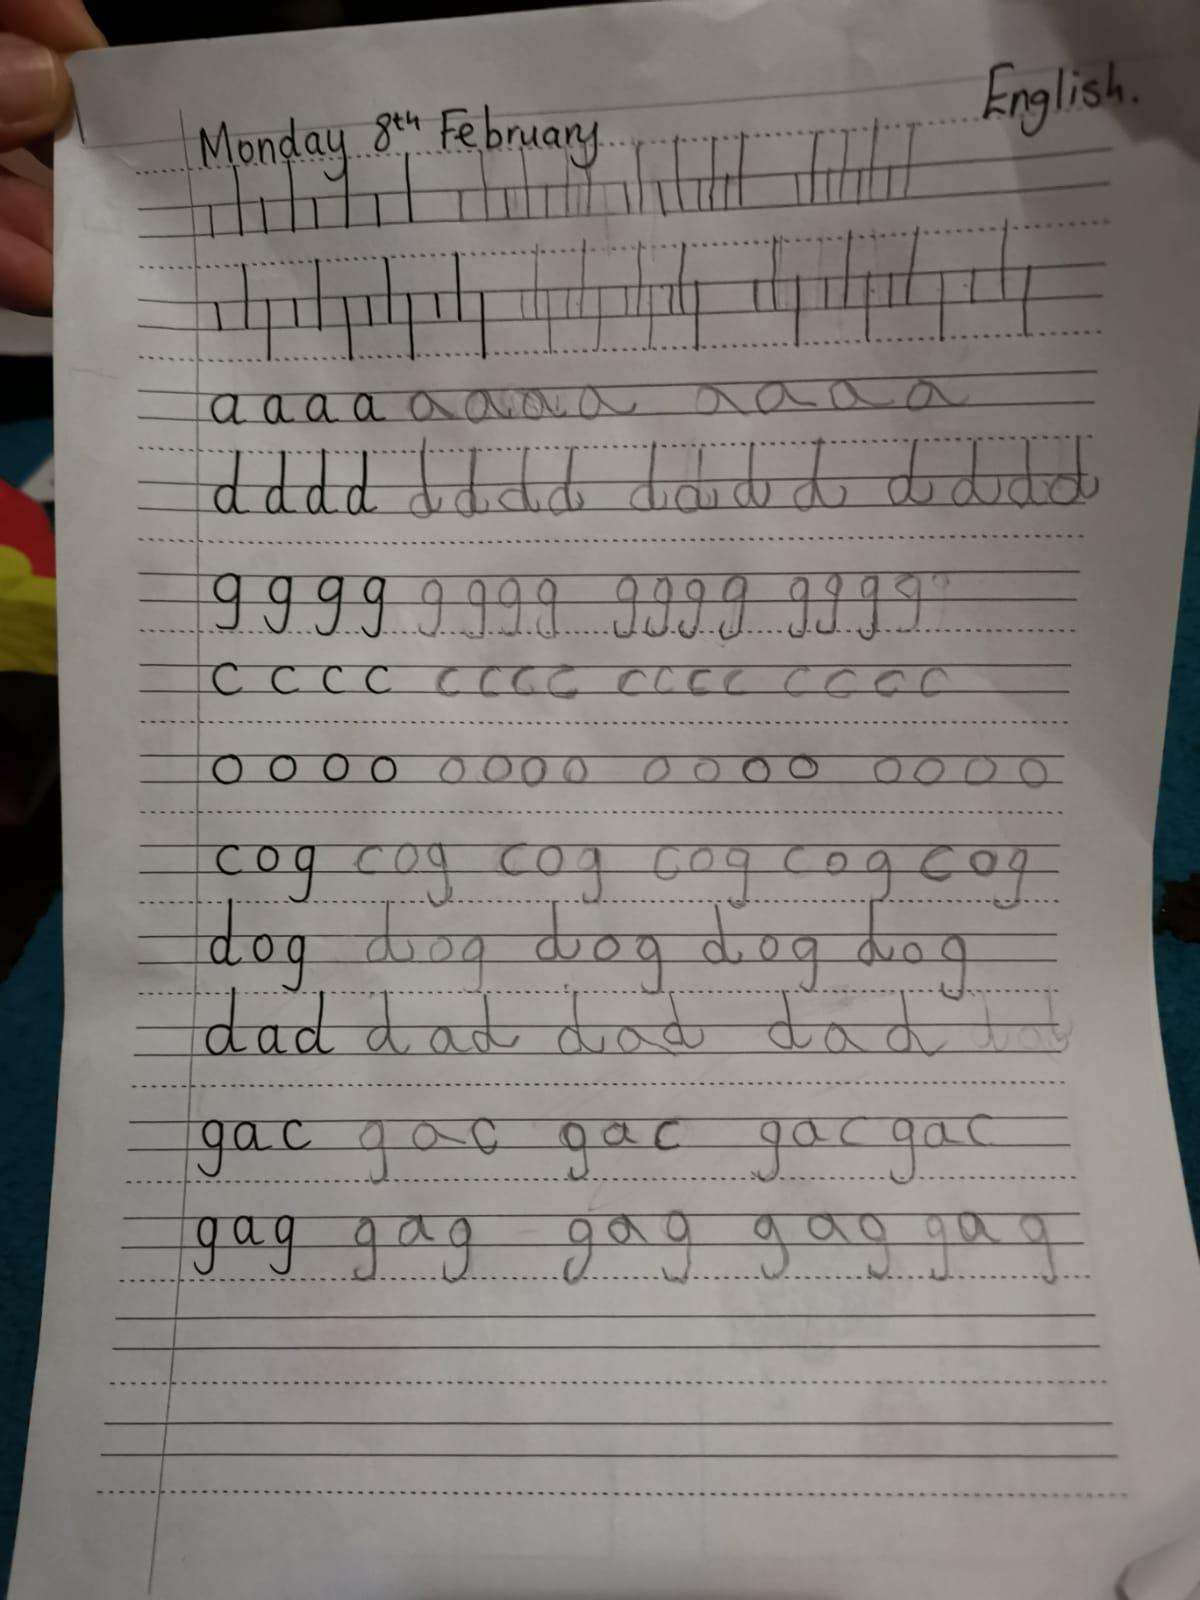 English.
Monday 8th February
a a a a a a a a a a a a
d d d d d d d d d d d d d d d d
g g g g g g g g g g g g g g g g
c c c c c c c c c c c c c c c c
o o o o o o o o o o o o o o o o
cog cog cog cog cog cog
dog dog dog dog dog
dad dad dad dad
gac gac gac gac gac
gag gag gag gag gag